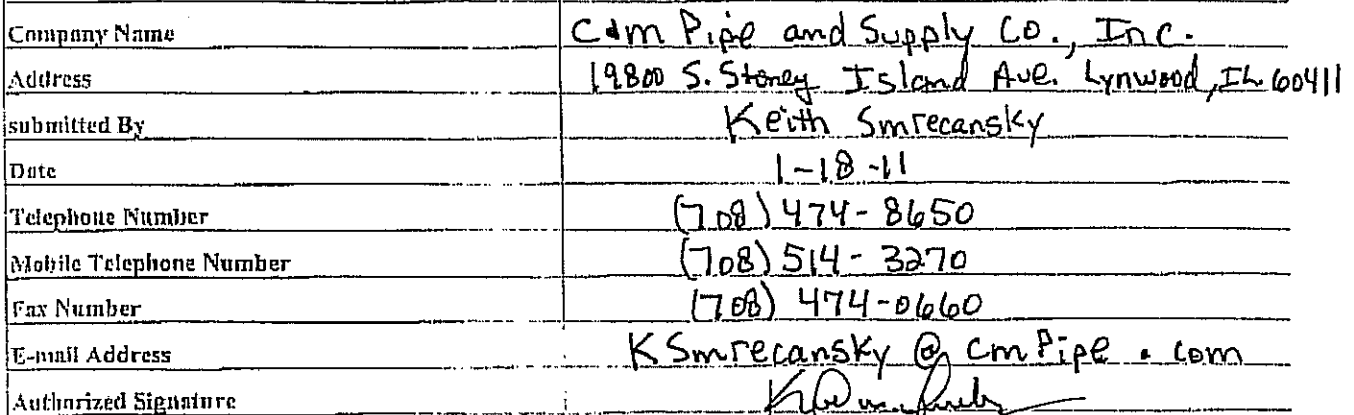 Company Name C&m Pipe and Supply Co., Inc.
Address 19800 S. Stoney Island Ave. Lynwood, IL 60411
submitted By Keith Smrecansky
Date 1-18-11
Telephone Number (708) 474-8650
Mobile Telephone Number (708) 514-3270
Fax Number (708) 474-0660
E-mail Address KSmrecansky @ cmPipe . com
Authorized Signature